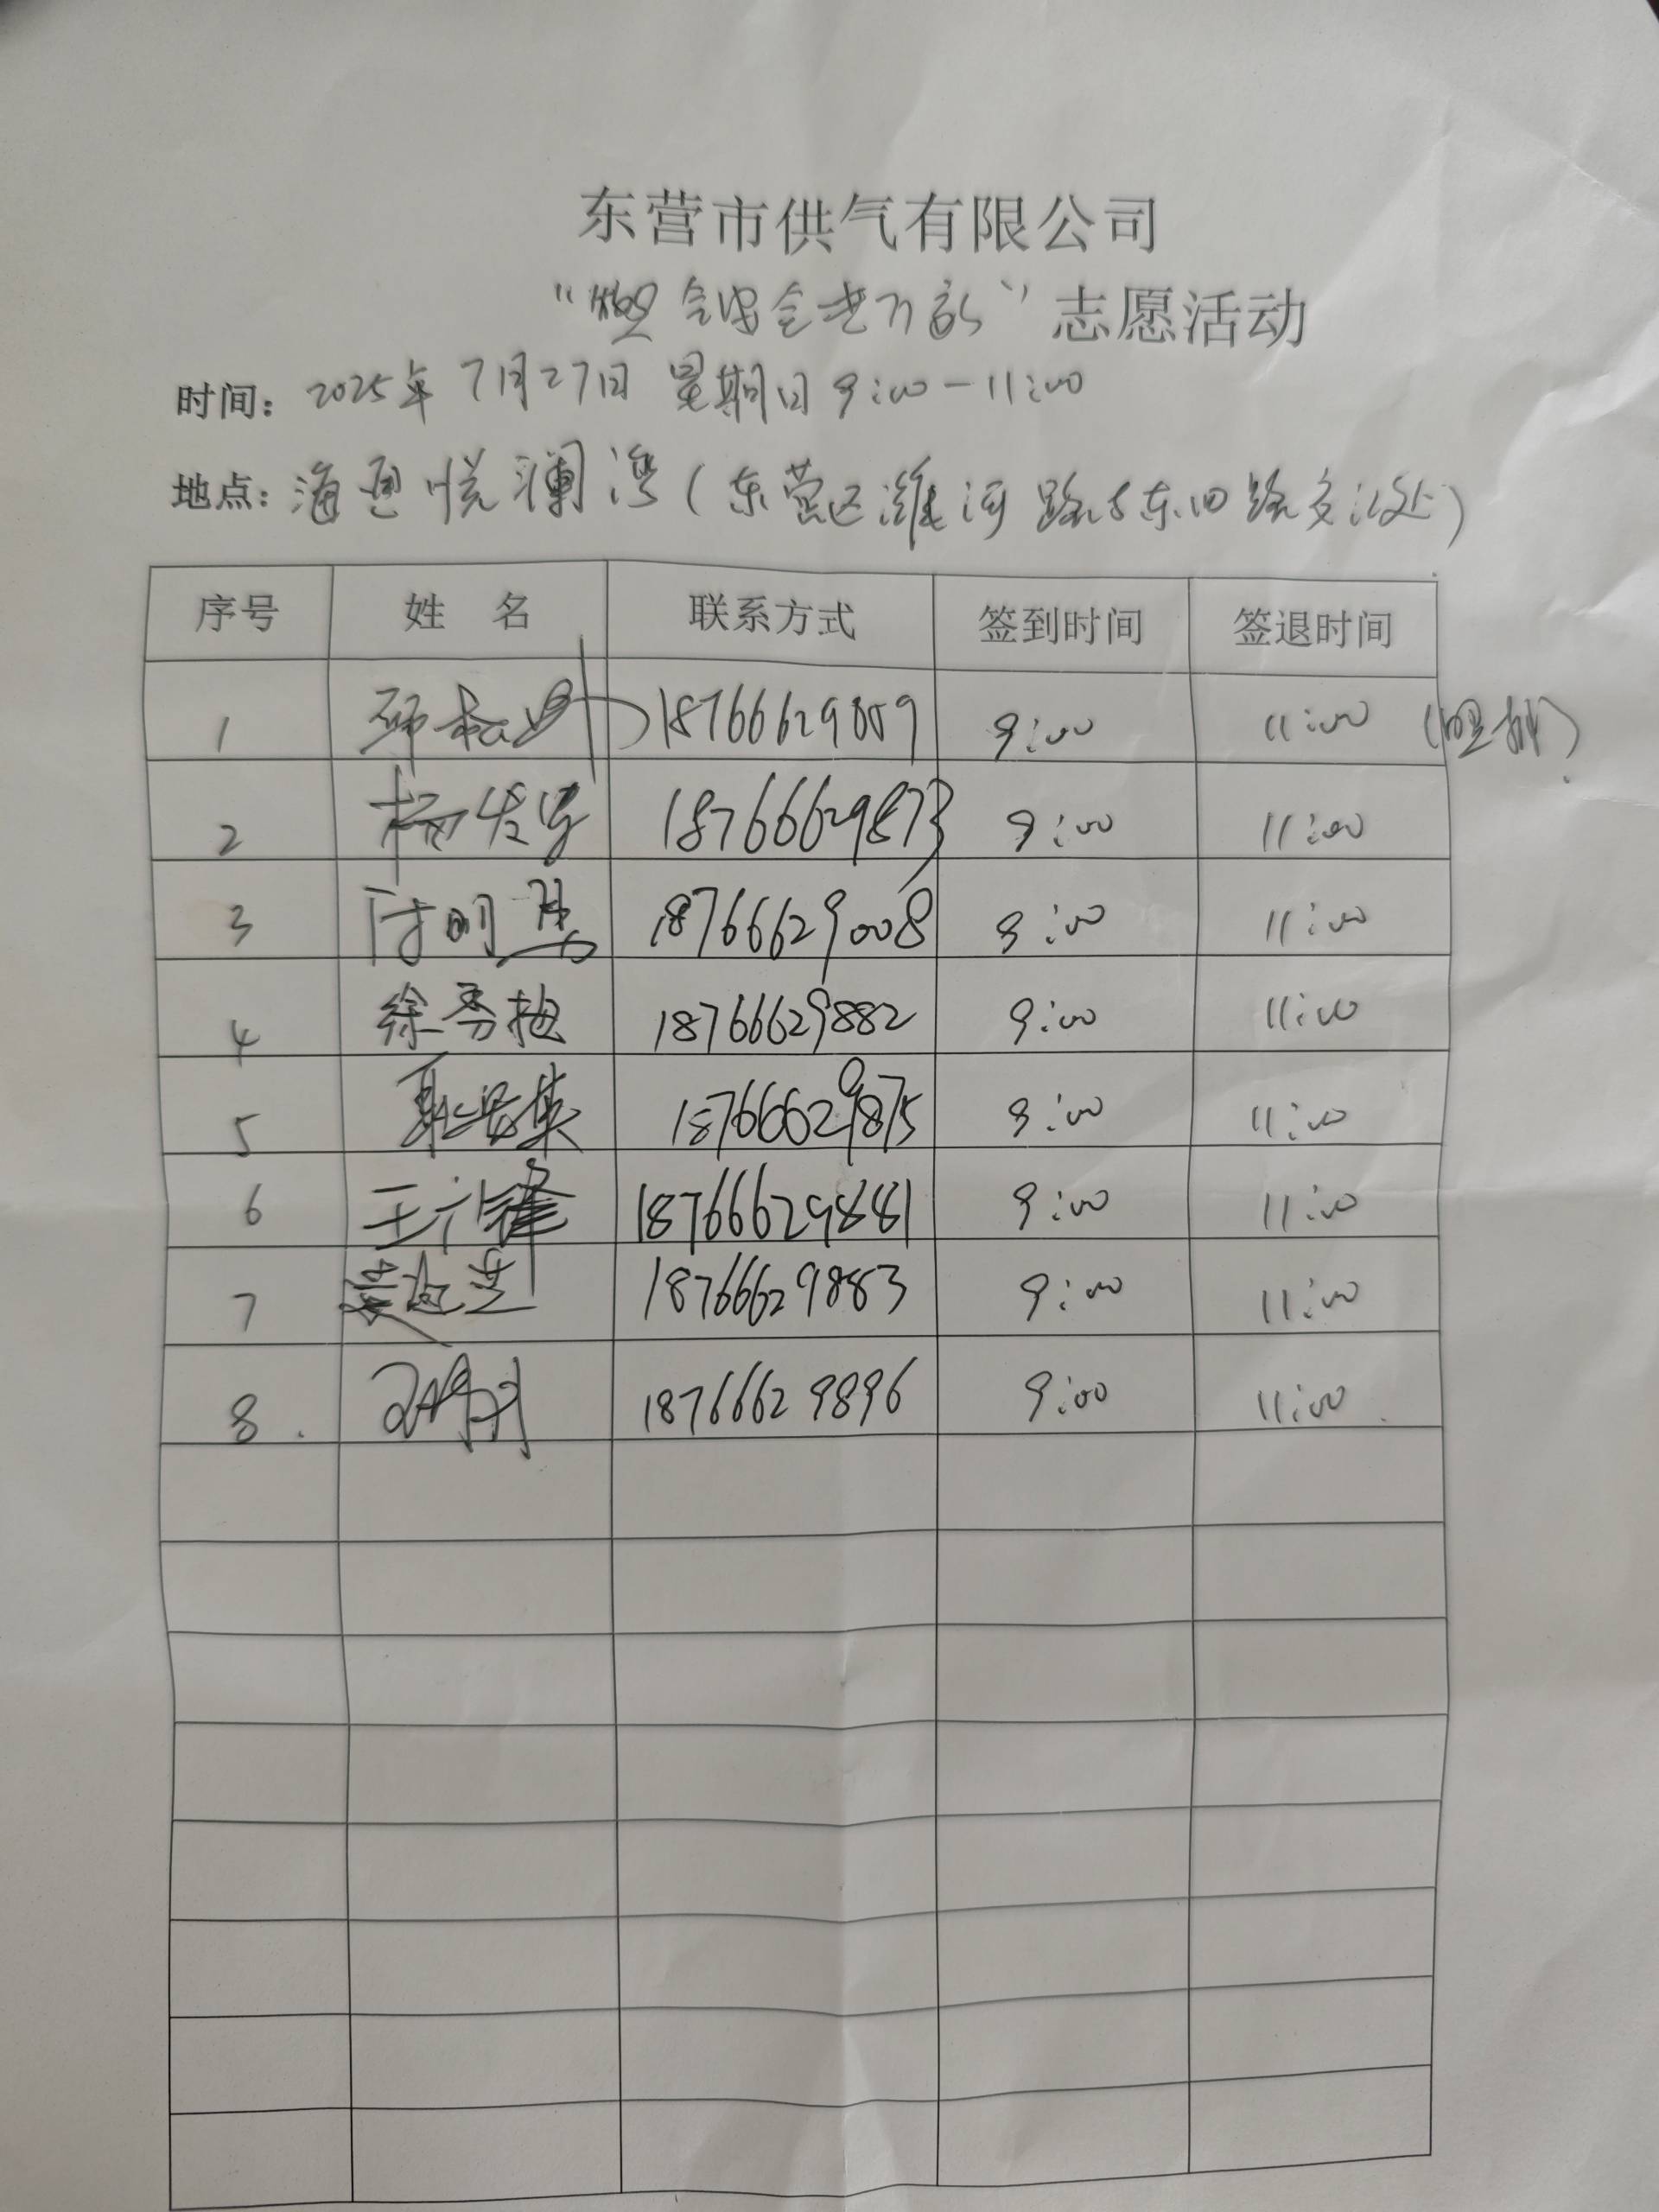 东营市供气有限公司
志愿活动
时间: 2025年7月27日 星期日 9:00-11:00
地点: 海通悦澜湾(东营区潍河路与东四路交汇处)
序号 姓 名 联系方式 签到时间 签退时间
1 18766629009 9:00 11:00
2 18766629873 9:00 11:00
3 18766629008 9:00 11:00
4 徐秀梅 18766629882 9:00 11:00
5 18766629875 9:00 11:00
6 18766629881 9:00 11:00
7 18766629883 9:00 11:00
8. 18766629896 9:00 11:00